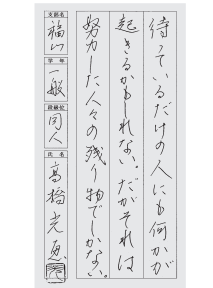 待っているだけの人にも何かが
起きるかもしれない。だがそれは
努力した人々の残り物でしかない。
支部名
福山
学年
一般
段級位
同人
氏名
高橋光恵